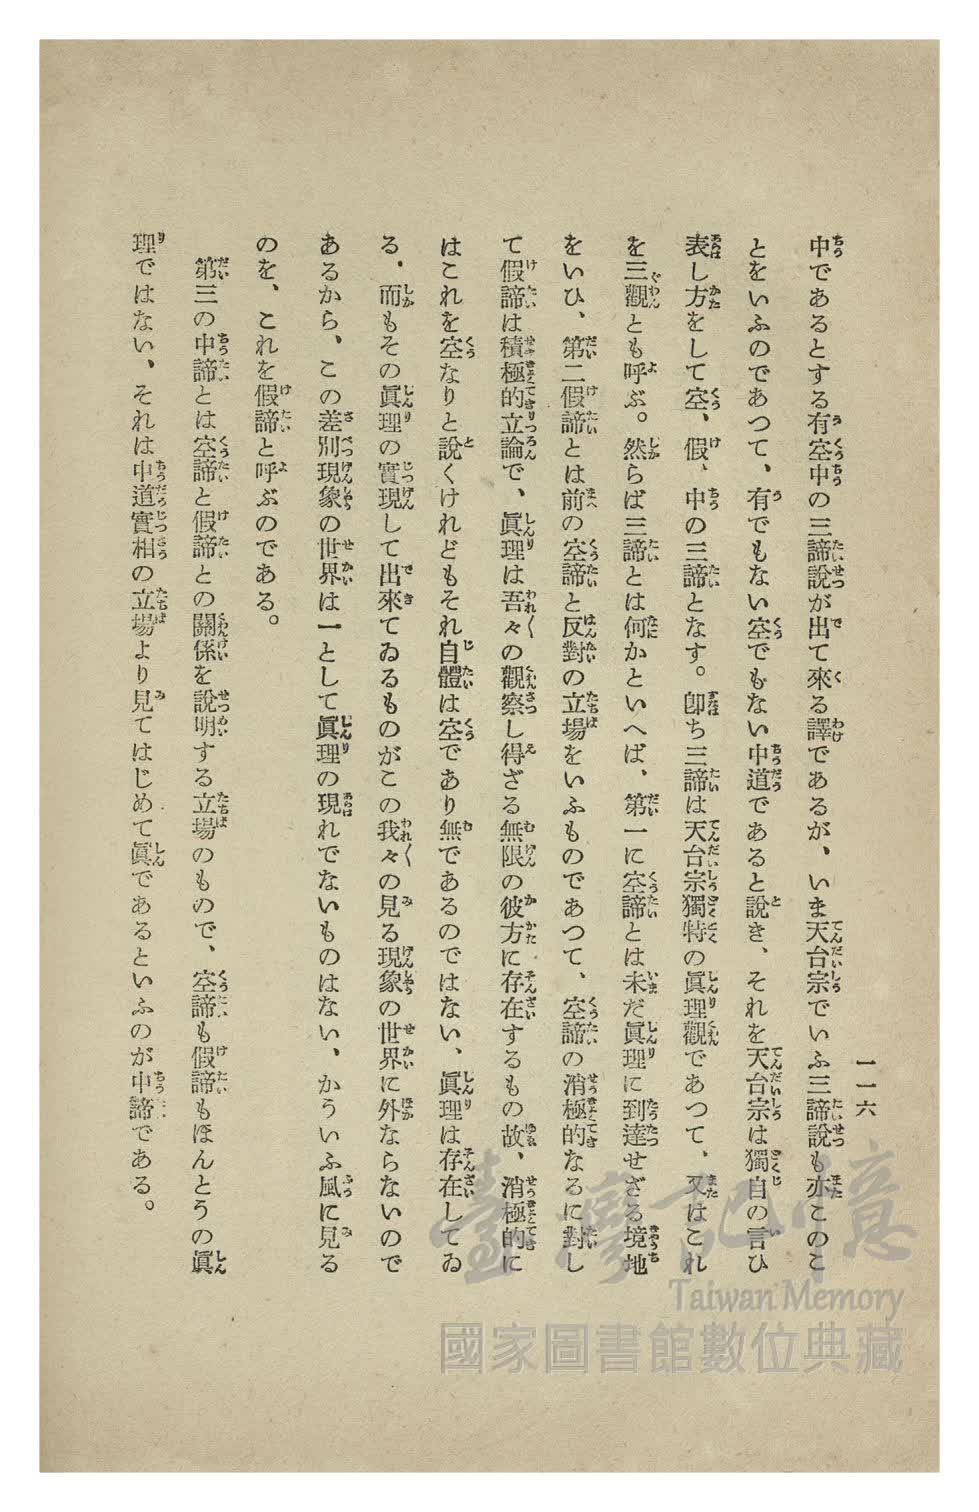 一一六
中であるとする有空中の三諦說が出て來る譯であるが、いま天台宗でいふ三諦說も亦このこ
とをいふのであつて、有でもない空でもない中道であると說き、それを天台宗は獨自の言ひ
表し方をして空、假、中の三諦となす。卽ち三諦は天台宗獨特の眞理觀であつて、又はこれ
を三觀とも呼ぶ。然らば三諦とは何かといへば、第一に空諦とは未だ眞理に到達せざる境地
をいひ、第二假諦とは前の空諦と反對の立場をいふものであつて、空諦の消極的なるに對し
て假諦は積極的立論で、眞理は吾々の觀察し得ざる無限の彼方に存在するもの故、消極的に
はこれを空なりと說くけれどもそれ自體は空であり無であるのではない、眞理は存在してゐ
る、而もその眞理の實現して出來てゐるものがこの我々の見る現象の世界に外ならないので
あるから、この差別現象の世界は一として眞理の現れでないものはない、かういふ風に見る
のを、これを假諦と呼ぶのである。
第三の中諦とは空諦と假諦との關係を說明する立場のもので、空諦も假諦もほんとうの眞
理ではない、それは中道實相の立場より見てはじめて眞であるといふのが中諦である。
臺灣記憶
Taiwan Memory
國家圖書館數位典藏